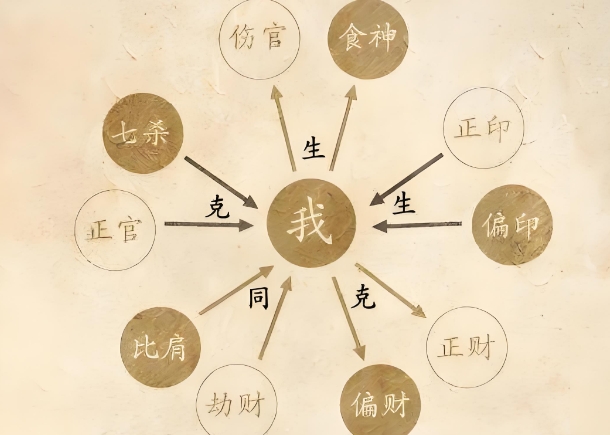 伤官
食神
七杀
生
正印
克
我
生
正官
偏印
同
克
比肩
正财
劫财
偏财